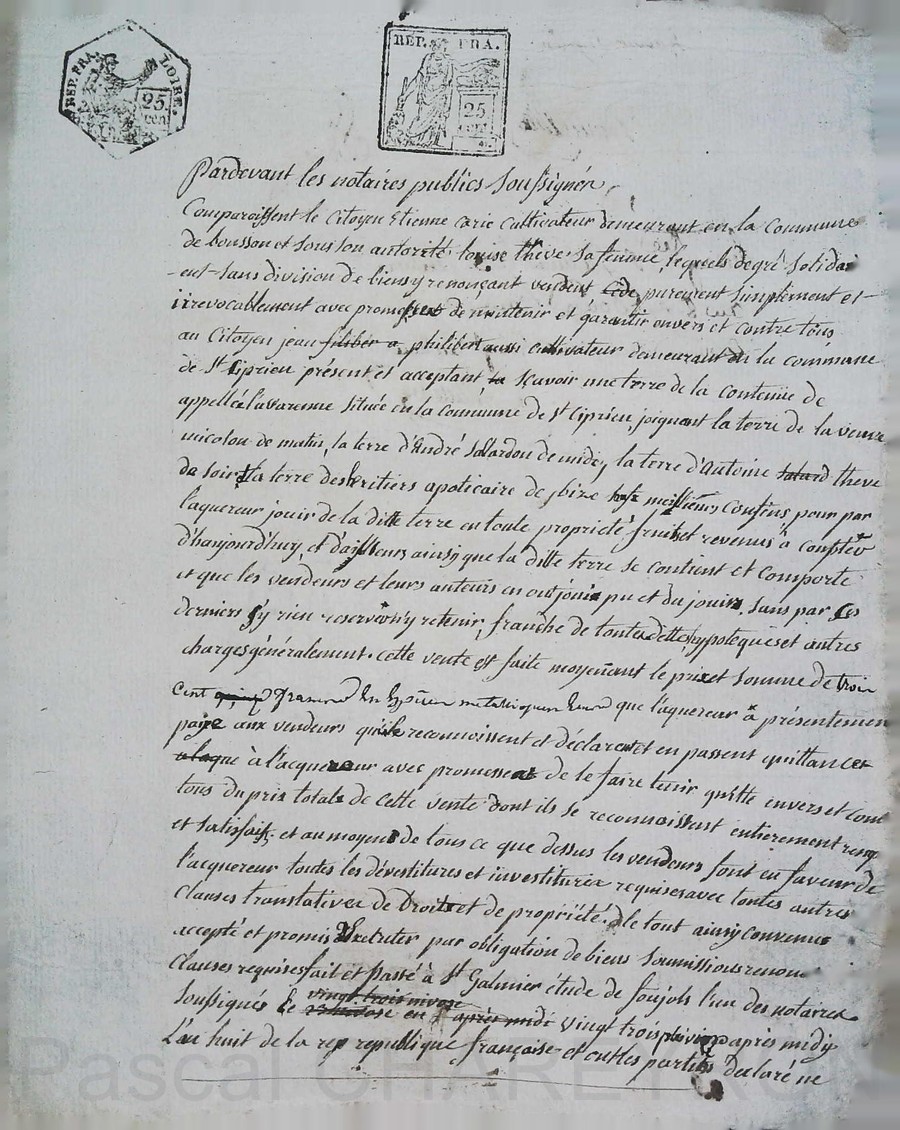 REP. FRA. LOIRE. 25. cen
REP. FRA. 25 cent
Pardevant les notaires publics Soussignés,
Comparoissent le Citoyen Etienne carie Cultivateur demeurant en la Commune
de boisson et sous son autorité louise theve sa femme, lesquels de gré solidai
-ent sans division de biens y renonçant vendent cede purement simplement et
irrevocablement avec promesse de maintenir et garantir envers et contre tous
au Citoyen jean filiber a philibert aussi cultivateur demeurant en la commune
de St Ciprien présent et acceptant, sçavoir une terre de la contenue de
appellée la varenne Située en la Commune de St Ciprien, joignant la terre de la veuve
nicolon de matin, la terre d'André Salardon de midy, la terre d'Antoine theve
du soir la terre des heritiers apoticaire de bize meilleurs Confins pour par
l'aquereur jouir de la ditte terre en toute propriété fruits et revenus à compter
d'haujourd'huy, et d'ailleurs ainsy que la ditte terre se contient et comporte
et que les vendeurs et leurs auteurs en ont joui pu et du jouir, sans par ces
derniers s'y rien reserver n'y retenir, franche de toutes dettes, hypoteques et autres
charges généralement. cette vente est faite moyeñant le prix et somme de trois
Cent francs en que l'aquereur à présentemen
payé aux vendeurs qui le reconnoissent et déclarent et en passent quittance
à l'acquereur avec promesse de le faire tenir quitte envers et cont
tous du prix total de cette vente dont ils se reconnaissent entierement remp
et satisfait, et au moyen de tous ce que dessus les vendeurs font en faveur de
l'acquereur toutes les dévestitures et investitures requises avec toutes autres
Clauses translatives de Droits et de propriété. le tout ainsy convenu
accepté et promis Executer par obligation de biens Soumissions renon
Clauses requises fait et passé à St Galmier étude de foujols l'un des notaires
Soussignés Le vingt trois nivose en après midi vingt trois pluviose après midy
L'an huit de la rep republique française et ont les parties declaré ne
Pascal CHARETRON